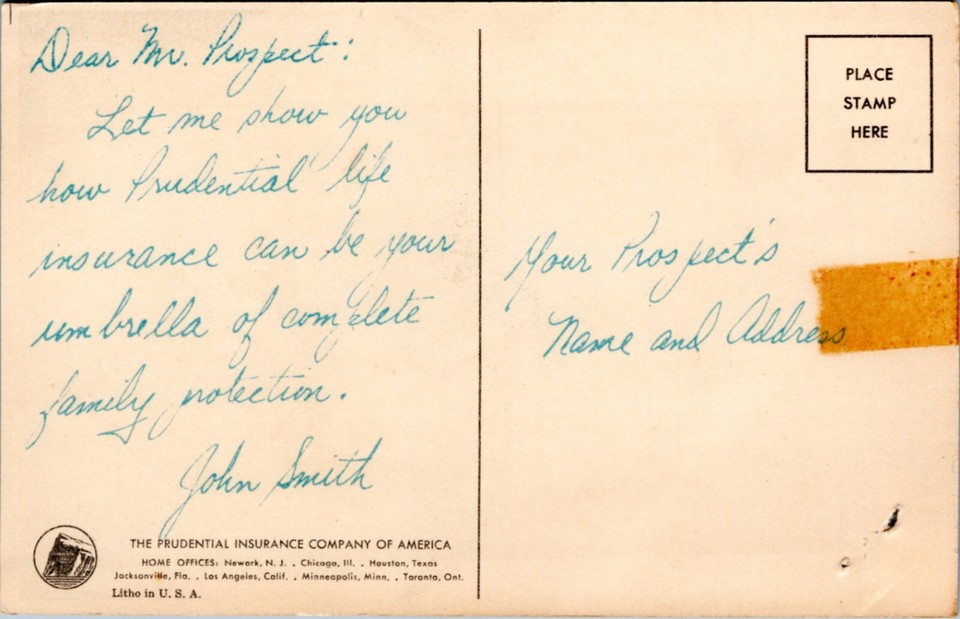 Dear Mr. Prospect:
Let me show you
how Prudential life
insurance can be your
umbrella of complete
family protection.
John Smith
THE PRUDENTIAL INSURANCE COMPANY OF AMERICA
HOME OFFICES: Newark, N. J. . Chicago, Ill. . Houston, Texas
Jacksonville, Fla. . Los Angeles, Calif. . Minneapolis, Minn. . Toronto, Ont.
Litho in U. S. A.
PLACE
STAMP
HERE
Your Prospect's
Name and Address